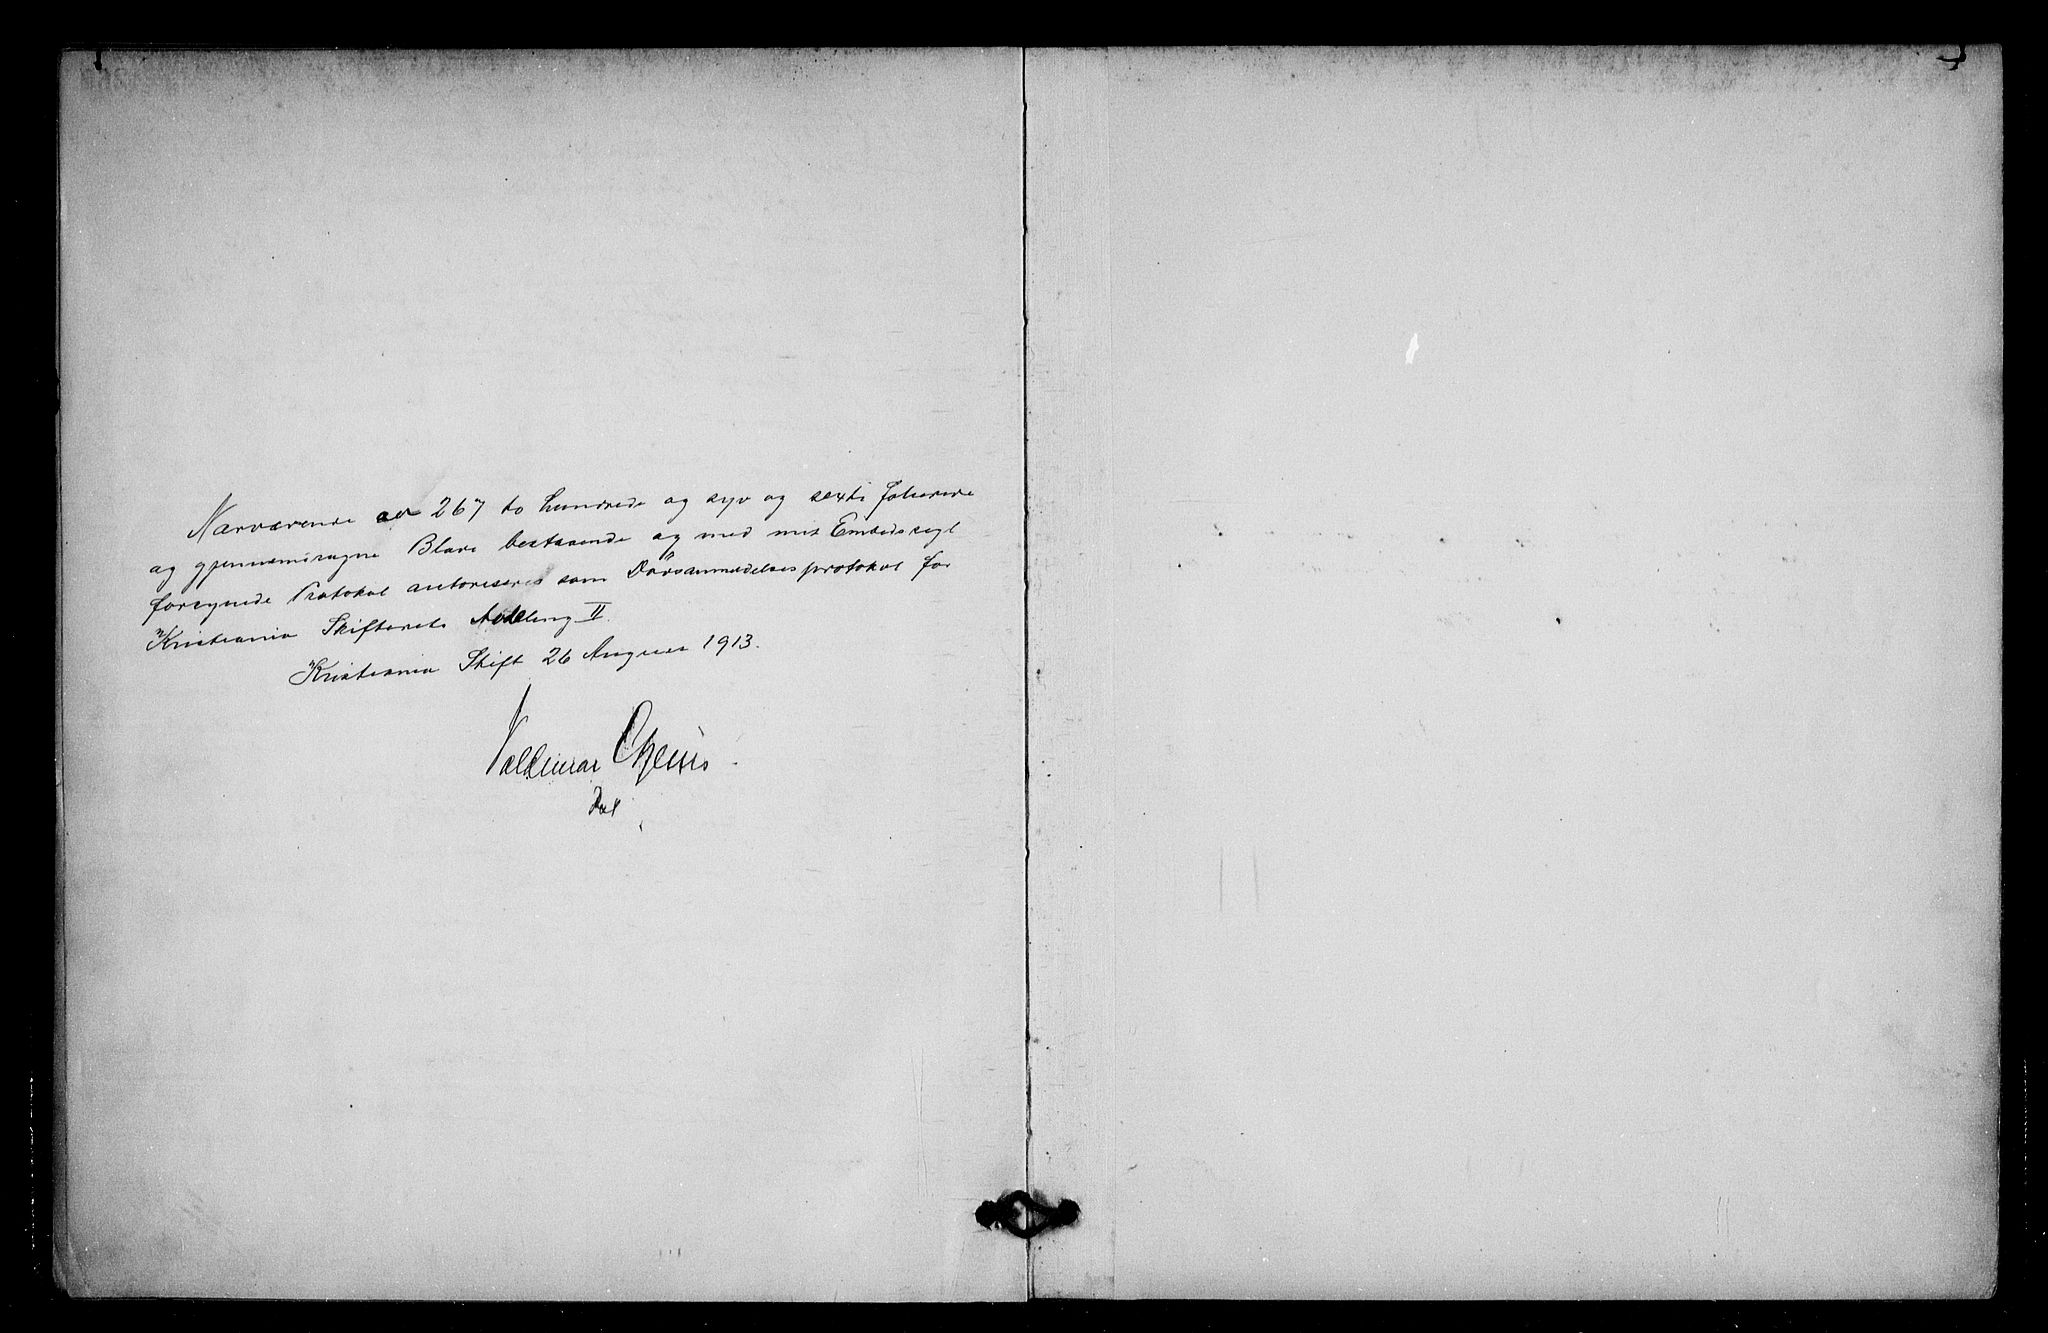 Nærværende av 267 to hundrede og syv og sexti folierede
og gjennemdragne Blade bestaaende og med mit Embedssegl
forsynede Protokol autoriseres som Dødsanmeldelsesprotokol for
Kristiania Skifterets Avdeling II.
Kristiania Skift 26 August 1913.
Valdemar